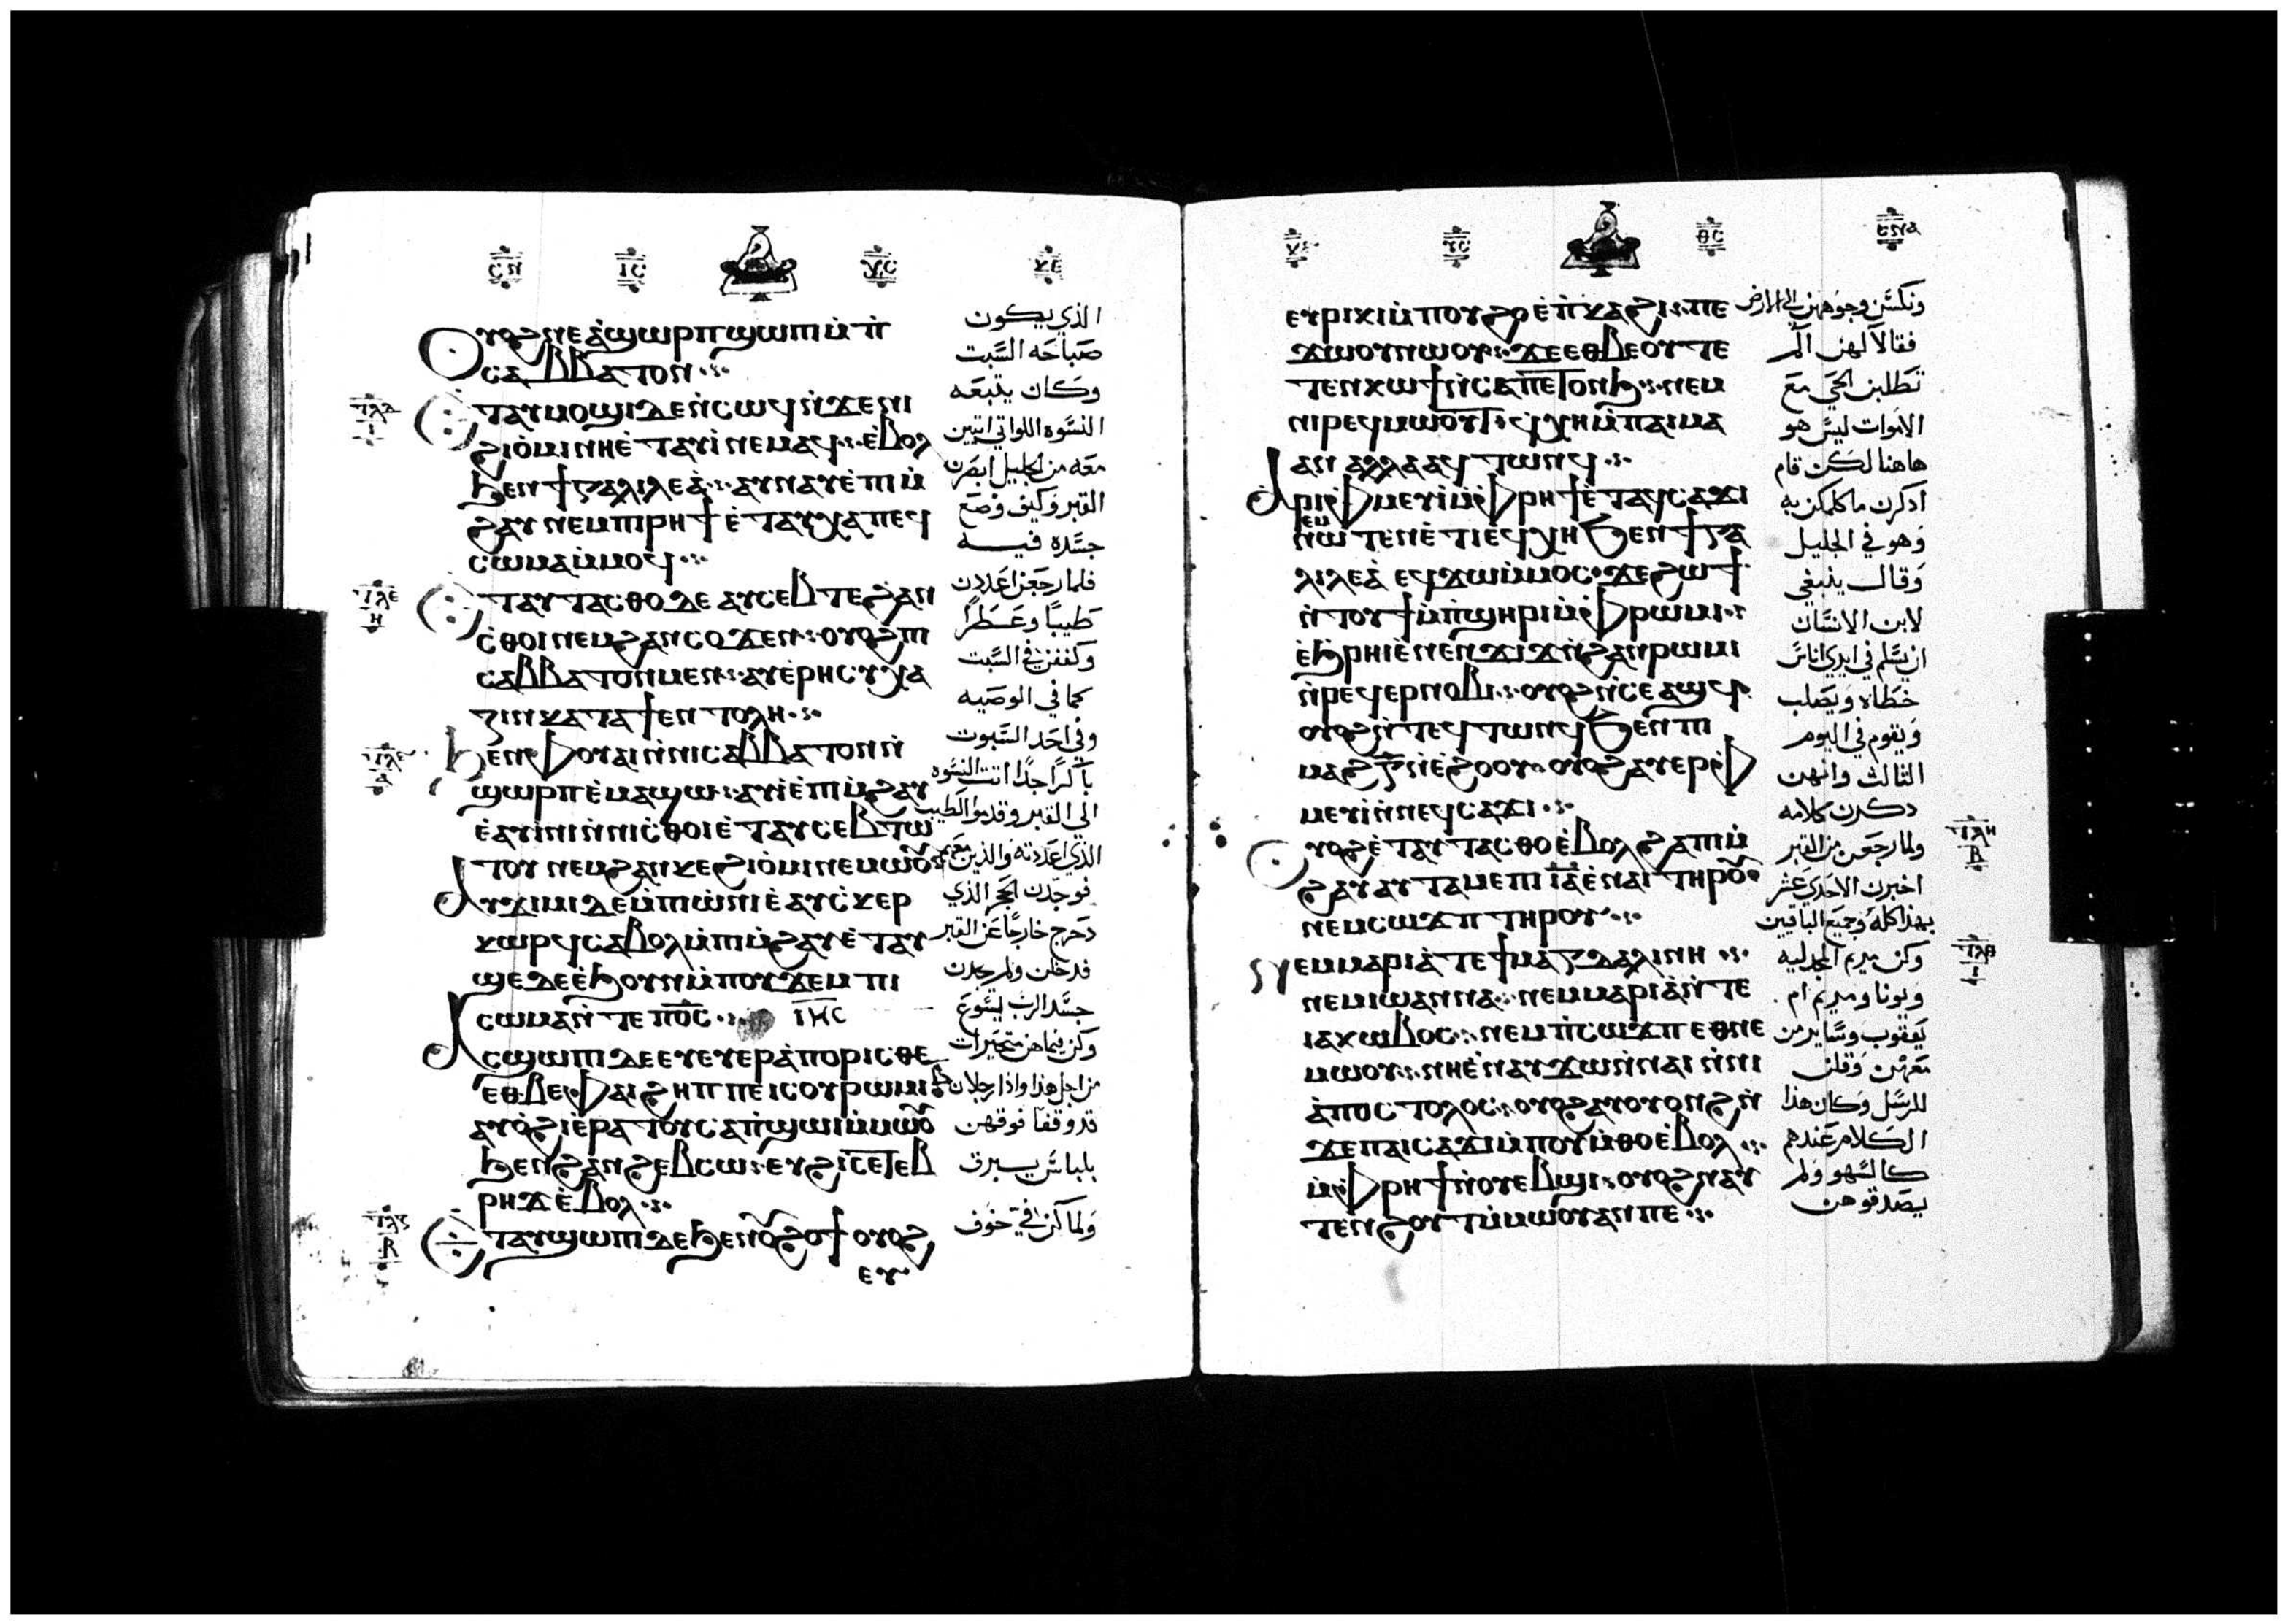 ⲥⲛ ⲓⲥ ⲭⲥ ⲕⲉ
ⲟⲩⲟϩ ⲛⲉ ⲁϣⲱⲣⲡ ϣⲱⲡⲓ ⲙ̀ⲡ̀
ⲥⲁⲃⲃⲁⲧⲟⲛ
ⲉⲧⲁⲩⲙⲟϣⲓ ⲇⲉ ⲛ̀ⲥⲱϥ ⲛ̀ϫⲉ ⲛⲓ
ϩⲓⲟ̀ⲙⲓ ⲛⲏ ⲉ̀ⲧⲁⲩⲓ̀ ⲛⲉⲙⲁϥ ⲉ̀ⲃⲟⲗ
ϧⲉⲛ ϯⲅⲁⲗⲓⲗⲉⲁ̀ ⲁⲩⲛⲁⲩ ⲉ̀ⲡⲓⲙ̀
ϩⲁⲩ ⲛⲉⲙ ⲡⲓⲣⲏϯ ⲉ̀ⲧⲁⲩⲭⲁ ⲡⲉϥ
ⲥⲱⲙⲁ ⲙ̀ⲙⲟϥ
ⲉⲧⲁⲩⲧⲁⲥⲑⲟ ⲇⲉ ⲁⲩⲥⲉⲃⲧⲉ ϩⲁⲛ
ⲥ̀ⲑⲟⲓ ⲛⲉⲙ ϩⲁⲛⲥⲟϫⲉⲛ ⲟⲩⲟϩ ⲡⲓ
ⲥⲁⲃⲃⲁⲧⲟⲛ ⲙⲉⲛ ⲁⲩⲉ̀ⲣⲏⲥⲩⲭⲁ
ⲍⲓⲛ ⲕⲁⲧⲁ ϯⲉⲛⲧⲟⲗⲏ
ϧⲉⲛ ⲫⲟⲩⲁⲓ ⲛ̀ⲛⲓⲥⲁⲃⲃⲁⲧⲟⲛ ⲛ̀
ϣⲱⲣⲡ ⲉ̀ⲙⲁϣⲱ ⲁⲩⲓ̀ ⲉ̀ⲡⲓⲙ̀ϩⲁⲩ
ⲉ̀ⲁⲩⲓ̀ⲛⲓ ⲛ̀ⲛⲓⲥ̀ⲑⲟⲓ ⲉ̀ⲧⲁⲩⲥⲉⲃⲧⲱ
ⲧⲟⲩ ⲛⲉⲙ ϩⲁⲛⲕⲉϩⲓⲟ̀ⲙⲓ ⲛⲉⲙⲱⲟⲩ
ⲁⲩϫⲓⲙⲓ ⲇⲉ ⲙ̀ⲡⲓⲱ̀ⲛⲓ ⲉ̀ⲁⲩⲥ̀ⲕⲉⲣ
ⲕⲱⲣϥ ⲥⲁⲃⲟⲗ ⲙ̀ⲡⲓⲙ̀ϩⲁⲩ ⲉ̀ⲧⲁⲩ
ϣⲉ ⲇⲉ ⲉ̀ϧⲟⲩⲛ ⲙ̀ⲡⲟⲩϫⲉⲙ ⲡⲓ
ⲥⲱⲙⲁ ⲛ̀ⲧⲉ ⲡⲟ̅ⲥ̅ ⲓⲏⲥ
ⲁⲥϣⲱⲡⲓ ⲇⲉ ⲉⲩⲉⲩⲉⲣⲁ̀ⲡⲟⲣⲓⲥⲑⲉ
ⲉⲑⲃⲉ ⲫⲁⲓ ϩⲏⲡⲡⲉ ⲓⲥ ⲟⲩⲣⲱⲙⲓ ⲃ̅
ⲁⲩⲟ̀ϩⲓ ⲉ̀ⲣⲁⲧⲟⲩ ⲥⲁⲡ̀ϣⲱⲓ ⲙ̀ⲙⲱⲟⲩ
ϧⲉⲛ ϩⲁⲛϩⲉⲃⲥⲱ ⲉⲩϩⲓⲥⲉⲧⲉⲃ
ⲣⲏϫ ⲉ̀ⲃⲟⲗ
ⲉⲧⲁⲩϣⲱⲡⲓ ⲇⲉ ϧⲉⲛ ⲟⲩϩⲟϯ ⲟⲩⲟϩ
ⲉⲩ
الذي يكون
صباحه السبت
وكان يتبعه
النسوه اللواتي اتين
معه من الجليل ابصرن
القبر وكيف وضع
جسده فيه
فلما رجعن اعددن
طيبا وعطرا
وكففن في السبت
كما في الوصيه
وفي احد السبوت
باكرا جدا اتت النسوه
الى القبر وقدموا الطيب
الذي اعددنه والذين معهن
فوجدن الحجر الذي
دحرج خارجا عن القبر
فدخلن ولم يجدن
جسد الرب يسوع
وكن فيما هن متحيرات
من اجل هذا واذا رجلان
قد وقفا فوقهن
بلباس يبرق
ولما كن في خوف
ⲩⲥ ⲑⲥ
ⲉⲩⲣⲓⲕⲓ ⲙ̀ⲡⲟⲩϩⲟ ⲉ̀ⲡ̀ⲕⲁϩⲓ ⲡⲉ
ϫⲱⲟⲩ ⲛⲱⲟⲩ ϫⲉ ⲉⲑⲃⲉⲟⲩ ⲧⲉ
ⲧⲉⲛⲕⲱϯ ⲛ̀ⲥⲁ ⲡⲉⲧⲟⲛϧ ⲛⲉⲙ
ⲛⲓⲣⲉϥⲙⲱⲟⲩⲧ ϥⲭⲏ ⲙ̀ⲡⲁⲓⲙⲁ
ⲁⲛ ⲁⲗⲗⲁ ⲁϥⲧⲱⲛϥ
ⲁⲣⲓⲫⲙⲉⲩⲓ̀ ⲙ̀ⲫⲣⲏϯ ⲉ̀ⲧⲁϥⲥⲁϫⲓ
ⲛⲉⲙⲱⲧⲉⲛ ⲉ̀ⲧⲓ ⲉϥⲭⲏ ϧⲉⲛ ϯⲅⲁ
ⲗⲓⲗⲉⲁ̀ ⲉϥϫⲱ ⲙ̀ⲙⲟⲥ ϫⲉ ϩⲱϯ
ⲛ̀ⲧⲟⲩϯ ⲙ̀ⲡ̀ϣⲏⲣⲓ ⲙ̀ⲫⲣⲱⲙⲓ
ⲉ̀ϧⲣⲏⲓ ⲉ̀ⲛⲉⲛϫⲓϫ ⲛ̀ϩⲁⲛⲣⲱⲙⲓ
ⲛ̀ⲣⲉϥⲉⲣⲛⲟⲃⲓ ⲟⲩⲟϩ ⲛ̀ⲥⲉⲁϣϥ
ⲟⲩⲟϩ ⲛ̀ⲧⲉϥⲧⲱⲛϥ ϧⲉⲛ ⲡⲓ
ⲙⲁϩ ⲅ̅ ⲛ̀ⲉ̀ϩⲟⲟⲩ ⲟⲩⲟϩ ⲁⲩⲉⲣⲫ
ⲙⲉⲩⲓ̀ ⲛ̀ⲛⲉϥⲥⲁϫⲓ
ⲟⲩⲟϩ ⲉ̀ⲧⲁⲩⲧⲁⲥⲑⲟ ⲉ̀ⲃⲟⲗ ϩⲁ ⲡⲓⲙ̀
ϩⲁⲩ ⲁⲩⲧⲁⲙⲉ ⲡⲓⲓ̅ⲁ̅ ⲉ̀ⲛⲁⲓ ⲧⲏⲣⲟⲩ
ⲛⲉⲙ ⲥⲱϫⲡ ⲧⲏⲣⲟⲩ
ⲛⲉ ⲙⲁⲣⲓⲁ̀ ⲧⲉ ϯⲙⲁⲅⲇⲁⲗⲓⲛⲏ
ⲛⲉⲙ ⲓⲱⲁⲛⲛⲁ ⲛⲉⲙ ⲙⲁⲣⲓⲁ̀ ⲛ̀ⲧⲉ
ⲓⲁⲕⲱⲃⲟⲥ ⲛⲉⲙ ⲡ̀ⲥⲱϫⲡ ⲉⲑⲛⲉ
ⲙⲱⲟⲩ ⲛⲏ ⲉ̀ⲛⲁⲩϫⲱ ⲛ̀ⲛⲁⲓ ⲛ̀ⲛⲓ
ⲁ̀ⲡⲟⲥⲧⲟⲗⲟⲥ ⲟⲩⲟϩ ⲁⲩⲟⲩⲟⲛϩ ⲛ̀
ϫⲉ ⲡⲁⲓⲥⲁϫⲓ ⲙ̀ⲡⲟⲩⲙ̀ⲑⲟ ⲉ̀ⲃⲟⲗ
ⲙ̀ⲫⲣⲏϯ ⲛ̀ⲟⲩⲉⲃϣⲓ ⲟⲩⲟϩ ⲛⲁⲩ
ⲧⲉⲛϩⲟⲩⲧ ⲙ̀ⲙⲱⲟⲩ ⲁⲛ ⲡⲉ
ونكسن وجوههن الى الارض
فقالا لهن الم
تطلبن الحي مع
الاموات ليس هو
هاهنا لكن قام
اذكرن ما كلمكن به
وهو في الجليل
وقال ينبغي
لابن الانسان
ان يسلم في ايدي اناس
خطاه ويصلب
ويقوم في اليوم
الثالث وانهن
ذكرن كلامه
ولما رجعن من القبر
اخبرن الاحدي عشر
بهذا كله وجميع الباقين
وكن مريم المجدليه
ويونا ومريم ام
يعقوب وساير من
معهن وقلن
للرسل وكان هذا
الكلام عندهم
كالسهو ولم
يصدقوهن